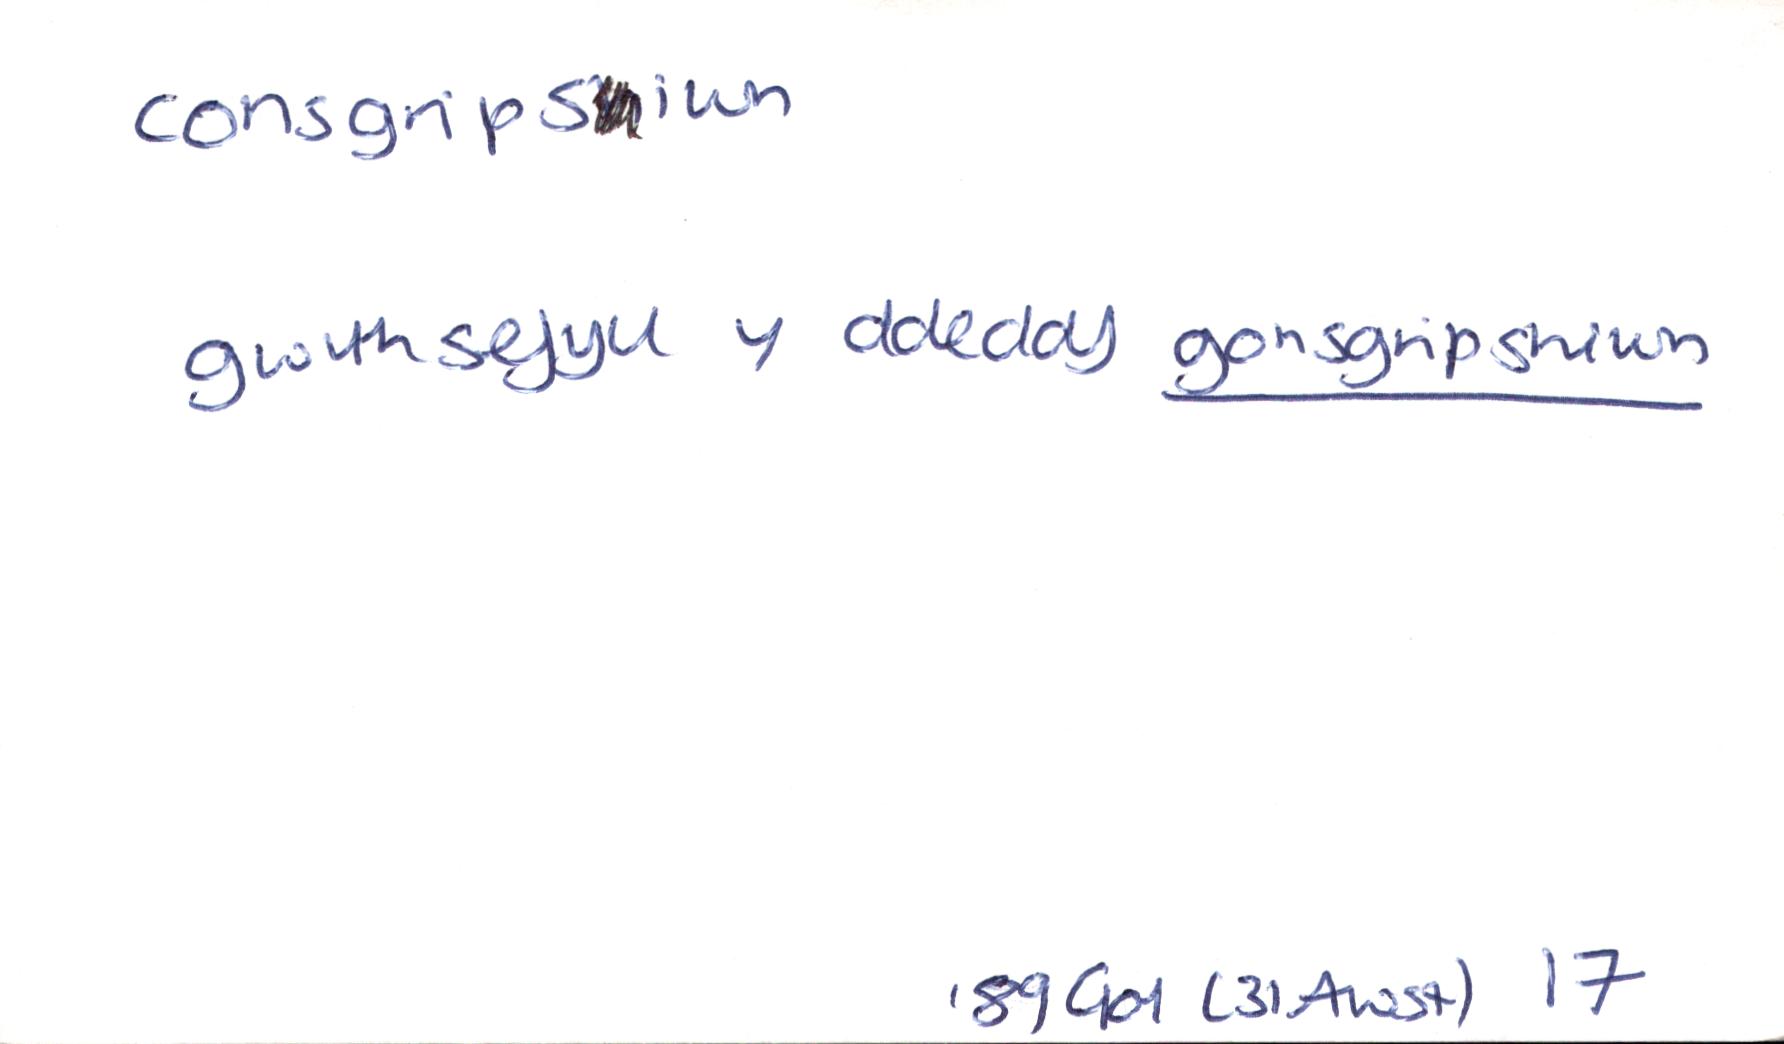 consgripsiwn
gwrthsefyll y ddeddf gonsgripshiwn
'89 Gol (31 Awst) 17